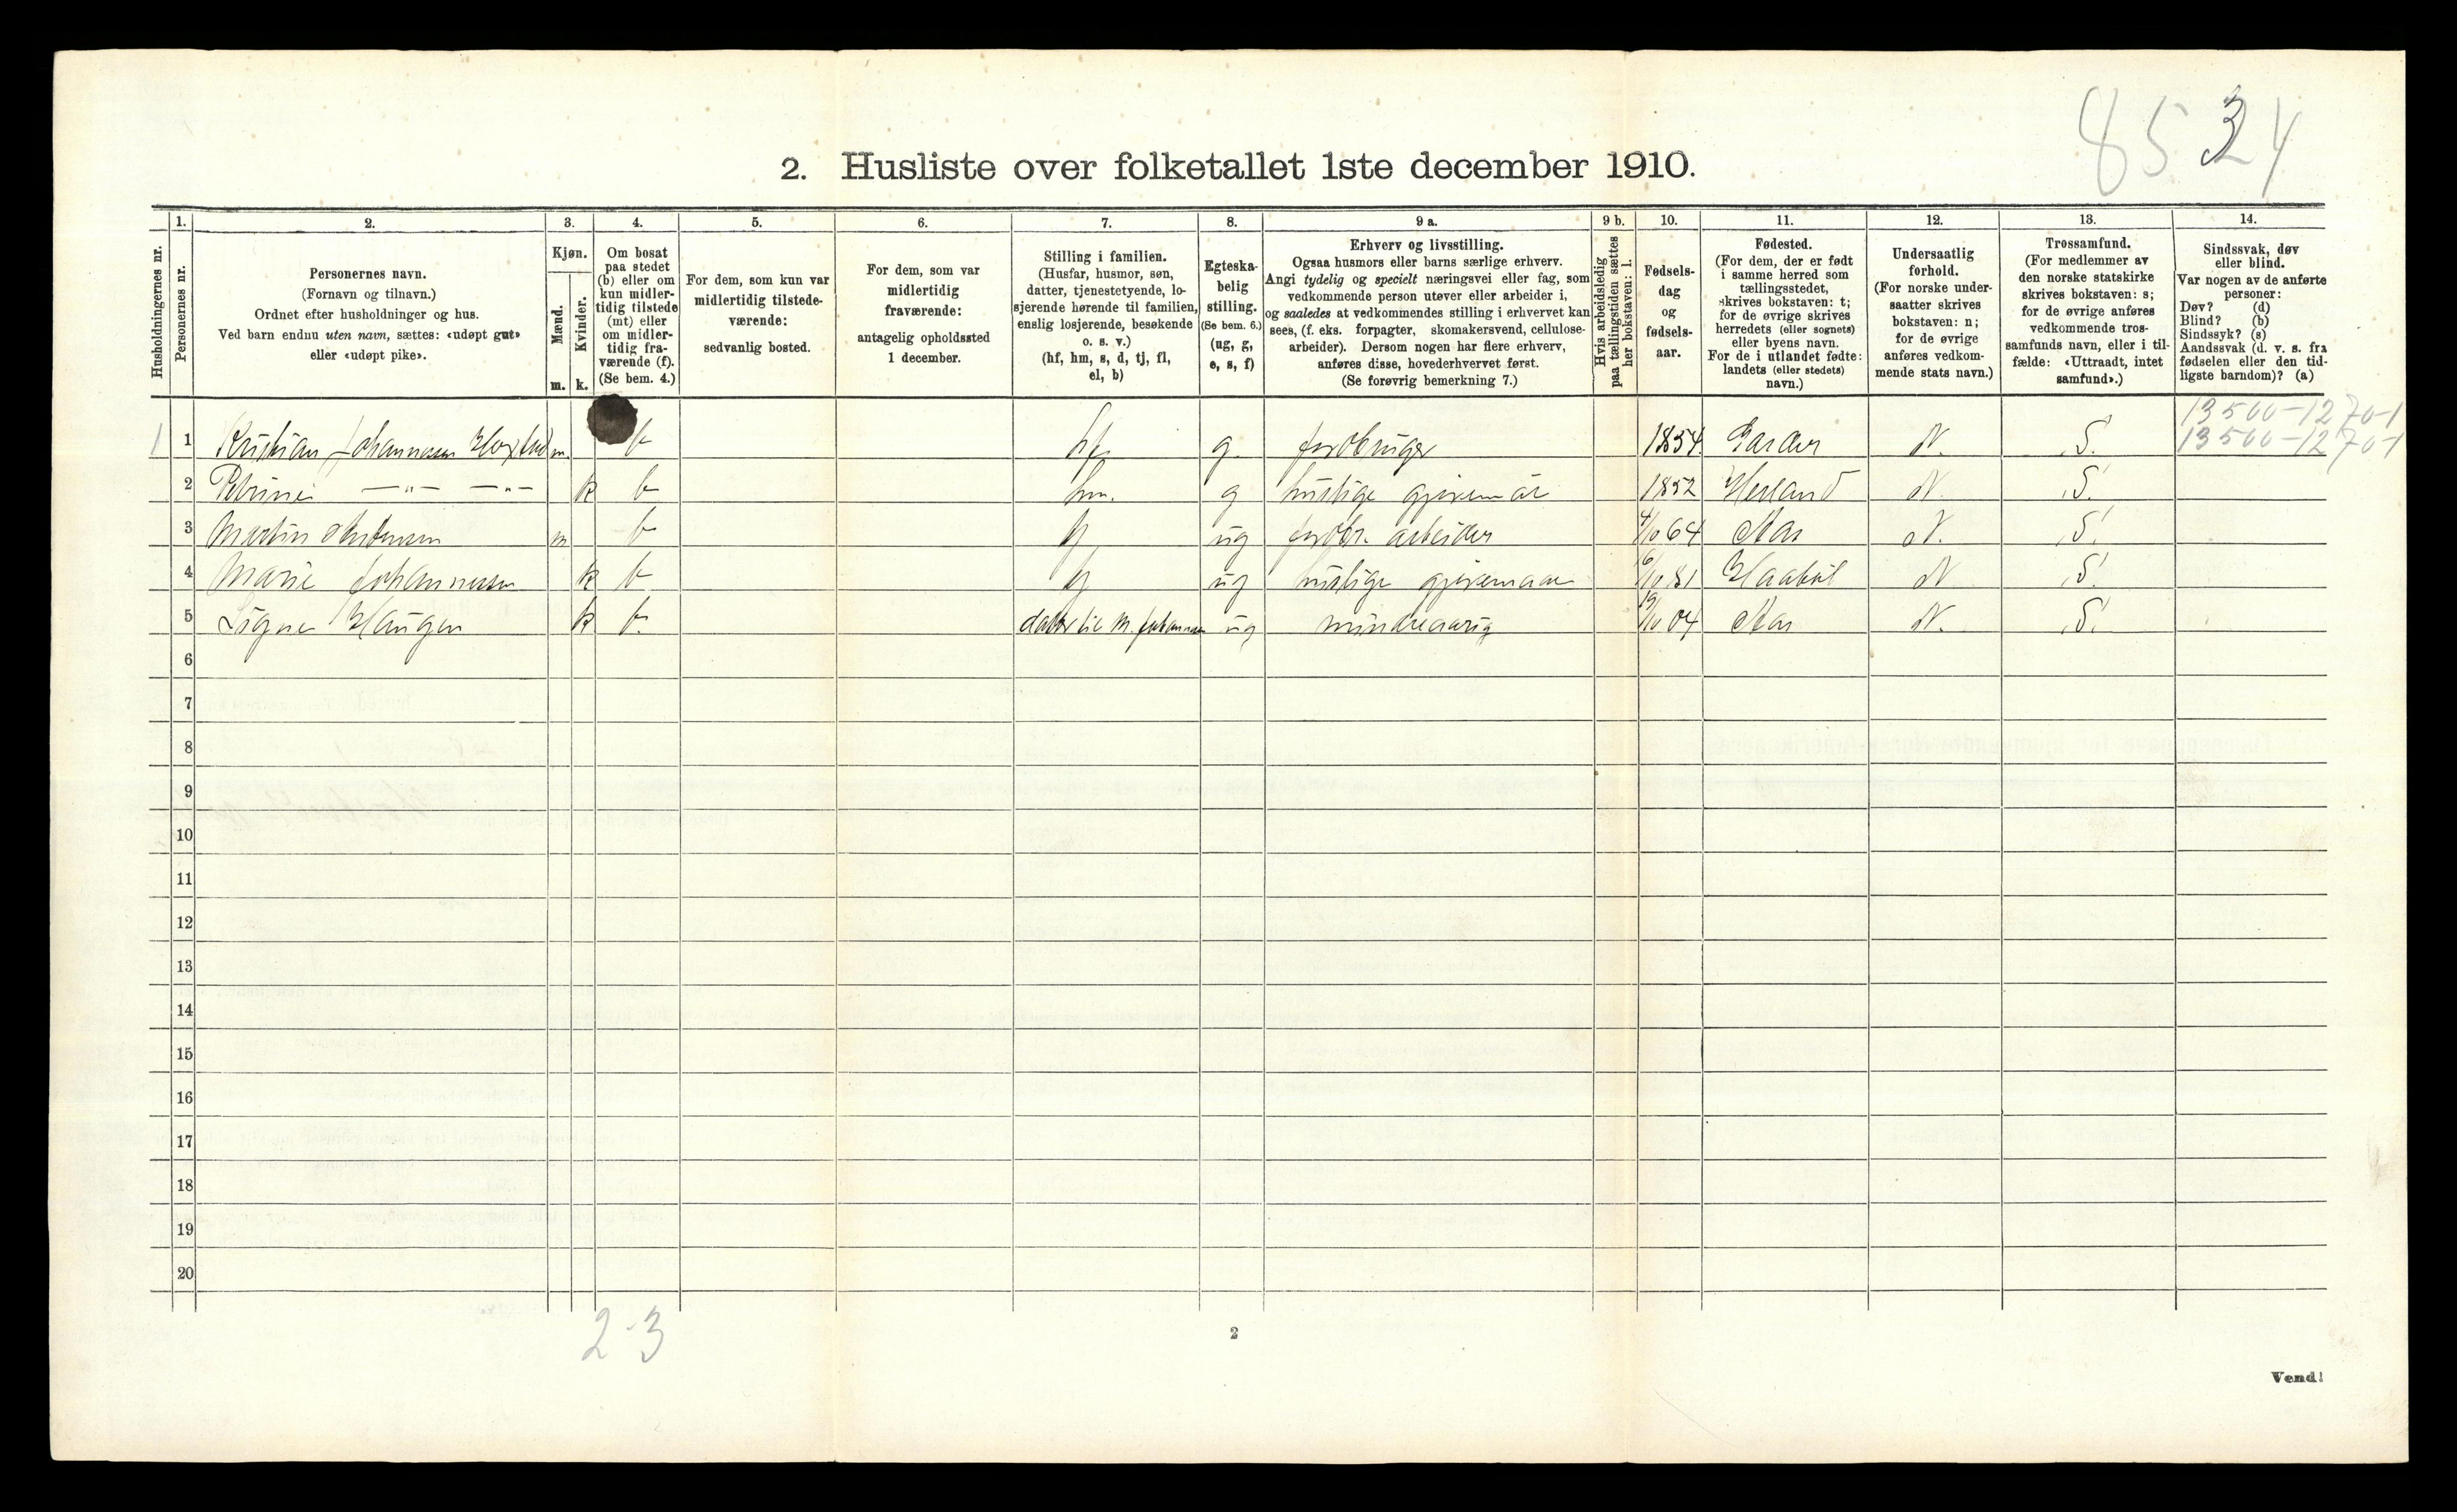 8534
2. Husliste over folketallet 1ste december 1910.
Husholdningernes nr.
1.
Personernes nr.
2.
Personernes navn.
(Fornavn og tilnavn.)
Ordnet efter husholdninger og hus.
Ved barn endnu uten navn, sættes: «udøpt gut»
eller «udøpt pike».
3.
Kjøn.
Mænd.
Kvinder.
m.
k.
4.
Om bosat
paa stedet
(b) eller om
kun midler-
tidig tilstede
(mt) eller
om midler-
tidig fra-
værende (f).
(Se bem. 4.)
5.
For dem, som kun var
midlertidig tilstede-
værende:
sedvanlig bosted.
6.
For dem, som var
midlertidig
fraværende:
antagelig opholdssted
1 december.
7.
Stilling i familien.
(Husfar, husmor, søn,
datter, tjenestetyende, lo-
sjerende hørende til familien,
enslig losjerende, besøkende
o. s. v.)
(hf, hm, s, d, tj, fl,
el, b)
8.
Egteska-
belig
stilling.
(Se bem. 6.)
(ug, g,
e, s, f)
9 a.
Erhverv og livsstilling.
Ogsaa husmors eller barns særlige erhverv.
Angi tydelig og specielt næringsvei eller fag, som
vedkommende person utøver eller arbeider i,
og saaledes at vedkommendes stilling i erhvervet kan
sees, (f. eks. forpagter, skomakersvend, cellulose-
arbeider). Dersom nogen har flere erhverv,
anføres disse, hovederhvervet først.
(Se forøvrig bemerkning 7.)
9 b.
Hvis arbeidsledig
paa tællingstiden sættes
her bokstaven: l.
10.
Fødsels-
dag
og
fødsels-
aar.
11.
Fødested.
(For dem, der er født
i samme herred som
tællingsstedet,
skrives bokstaven: t;
for de øvrige skrives
herredets (eller sognets)
eller byens navn.
For de i utlandet fødte:
landets (eller stedets)
navn.)
12.
Undersaatlig
forhold.
(For norske under-
saatter skrives
bokstaven: n;
for de øvrige
anføres vedkom-
mende stats navn.)
13.
Trossamfund.
(For medlemmer av
den norske statskirke
skrives bokstaven: s;
for de øvrige anføres
vedkommende tros-
samfunds navn, eller i til-
fælde: «Uttraadt, intet
samfund».)
14.
Sindssvak, døv
eller blind.
Var nogen av de anførte
personer:
Døv? (d)
Blind? (b)
Sindssyk? (s)
Aandssvak (d. v. s. fra
fødselen eller den tid-
ligste barndom)? (a)
13500-1270-1
1 1 Kristian Johannessen m. b hf g. jordbruger 1854 Garder N. S. 13500-1270-1
2 Petrine —„— —„— k b hm. g huslige gjøremål 1852 N. S.
3 Martin m b tj ug jordbr. arbeider 4/10 64 Aas N. S.
4 Marie Johannessen k b tj ug huslige gjøremaal 6/10 81 Haabøl N S.
5 Signe Haugen k b. datter til M. Johannessen ug mindreaarig 19/10 04 Aas N. S.
6
7
8
9
10
11
12
13
14
15
16
17
18
19
20
2-3
2
Vend!